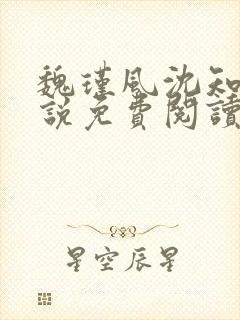 魏瑾風沈知
說免費閱讀
星空辰星